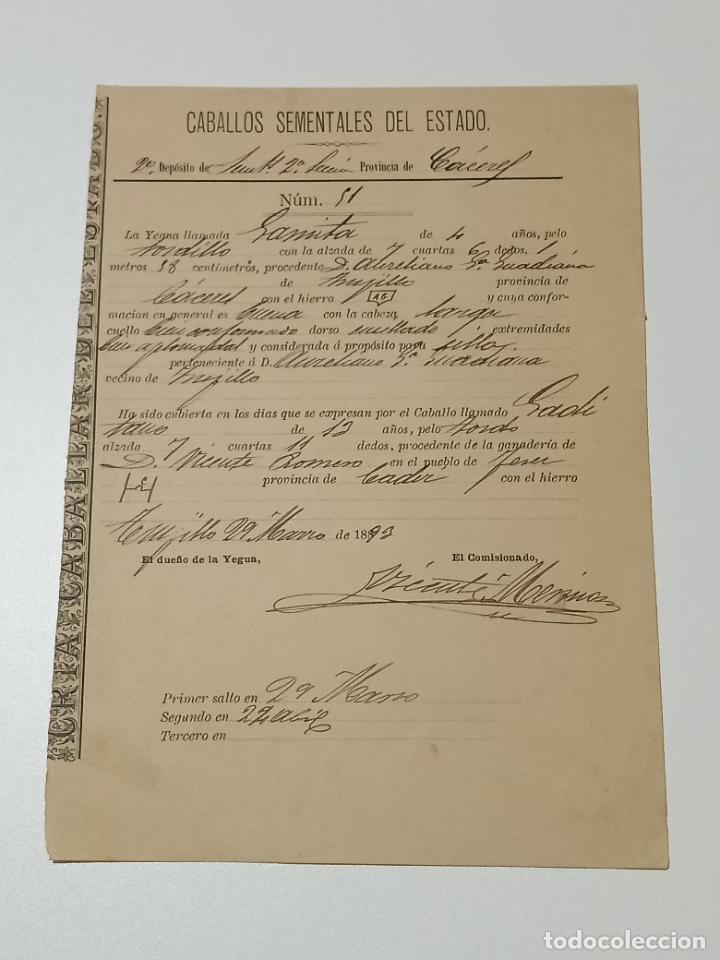 CRIA CABALLAR DEL ESTADO.
CABALLOS SEMENTALES DEL ESTADO.
2º Depósito de Sem.s 2ª Sección Provincia de Cáceres
Núm. 51
La Yegua llamada Gamita de 4 años, pelo
tordillo con la alzada de 7 cuartas 6 dedos, 1
metros 58 centímetros, procedente D. Aureliano Gª Guadiana
de Trujillo provincia de
Cáceres con el hierro AG y cuya confor-
macion en general es buena con la cabeza larga
cuello bien conformado dorso ensillado y extremidades
bien aplomadas y considerada á propósito para silla,
perteneciente á D. Aureliano Gª Guadiana
vecino de Trujillo
Ha sido cubierta en los dias que se expresan por el Caballo llamado Gadi
tano de 13 años, pelo tordo
alzada 7 cuartas 11 dedos, procedente de la ganadería de
D. Vicente Romero en el pueblo de Jerez
provincia de Cadiz con el hierro
Trujillo 29 Marzo de 1893
El dueño de la Yegua, El Comisionado,
Vicente
Primer salto en 29 Marzo
Segundo en 22 Abril
Tercero en
todocoleccion.net